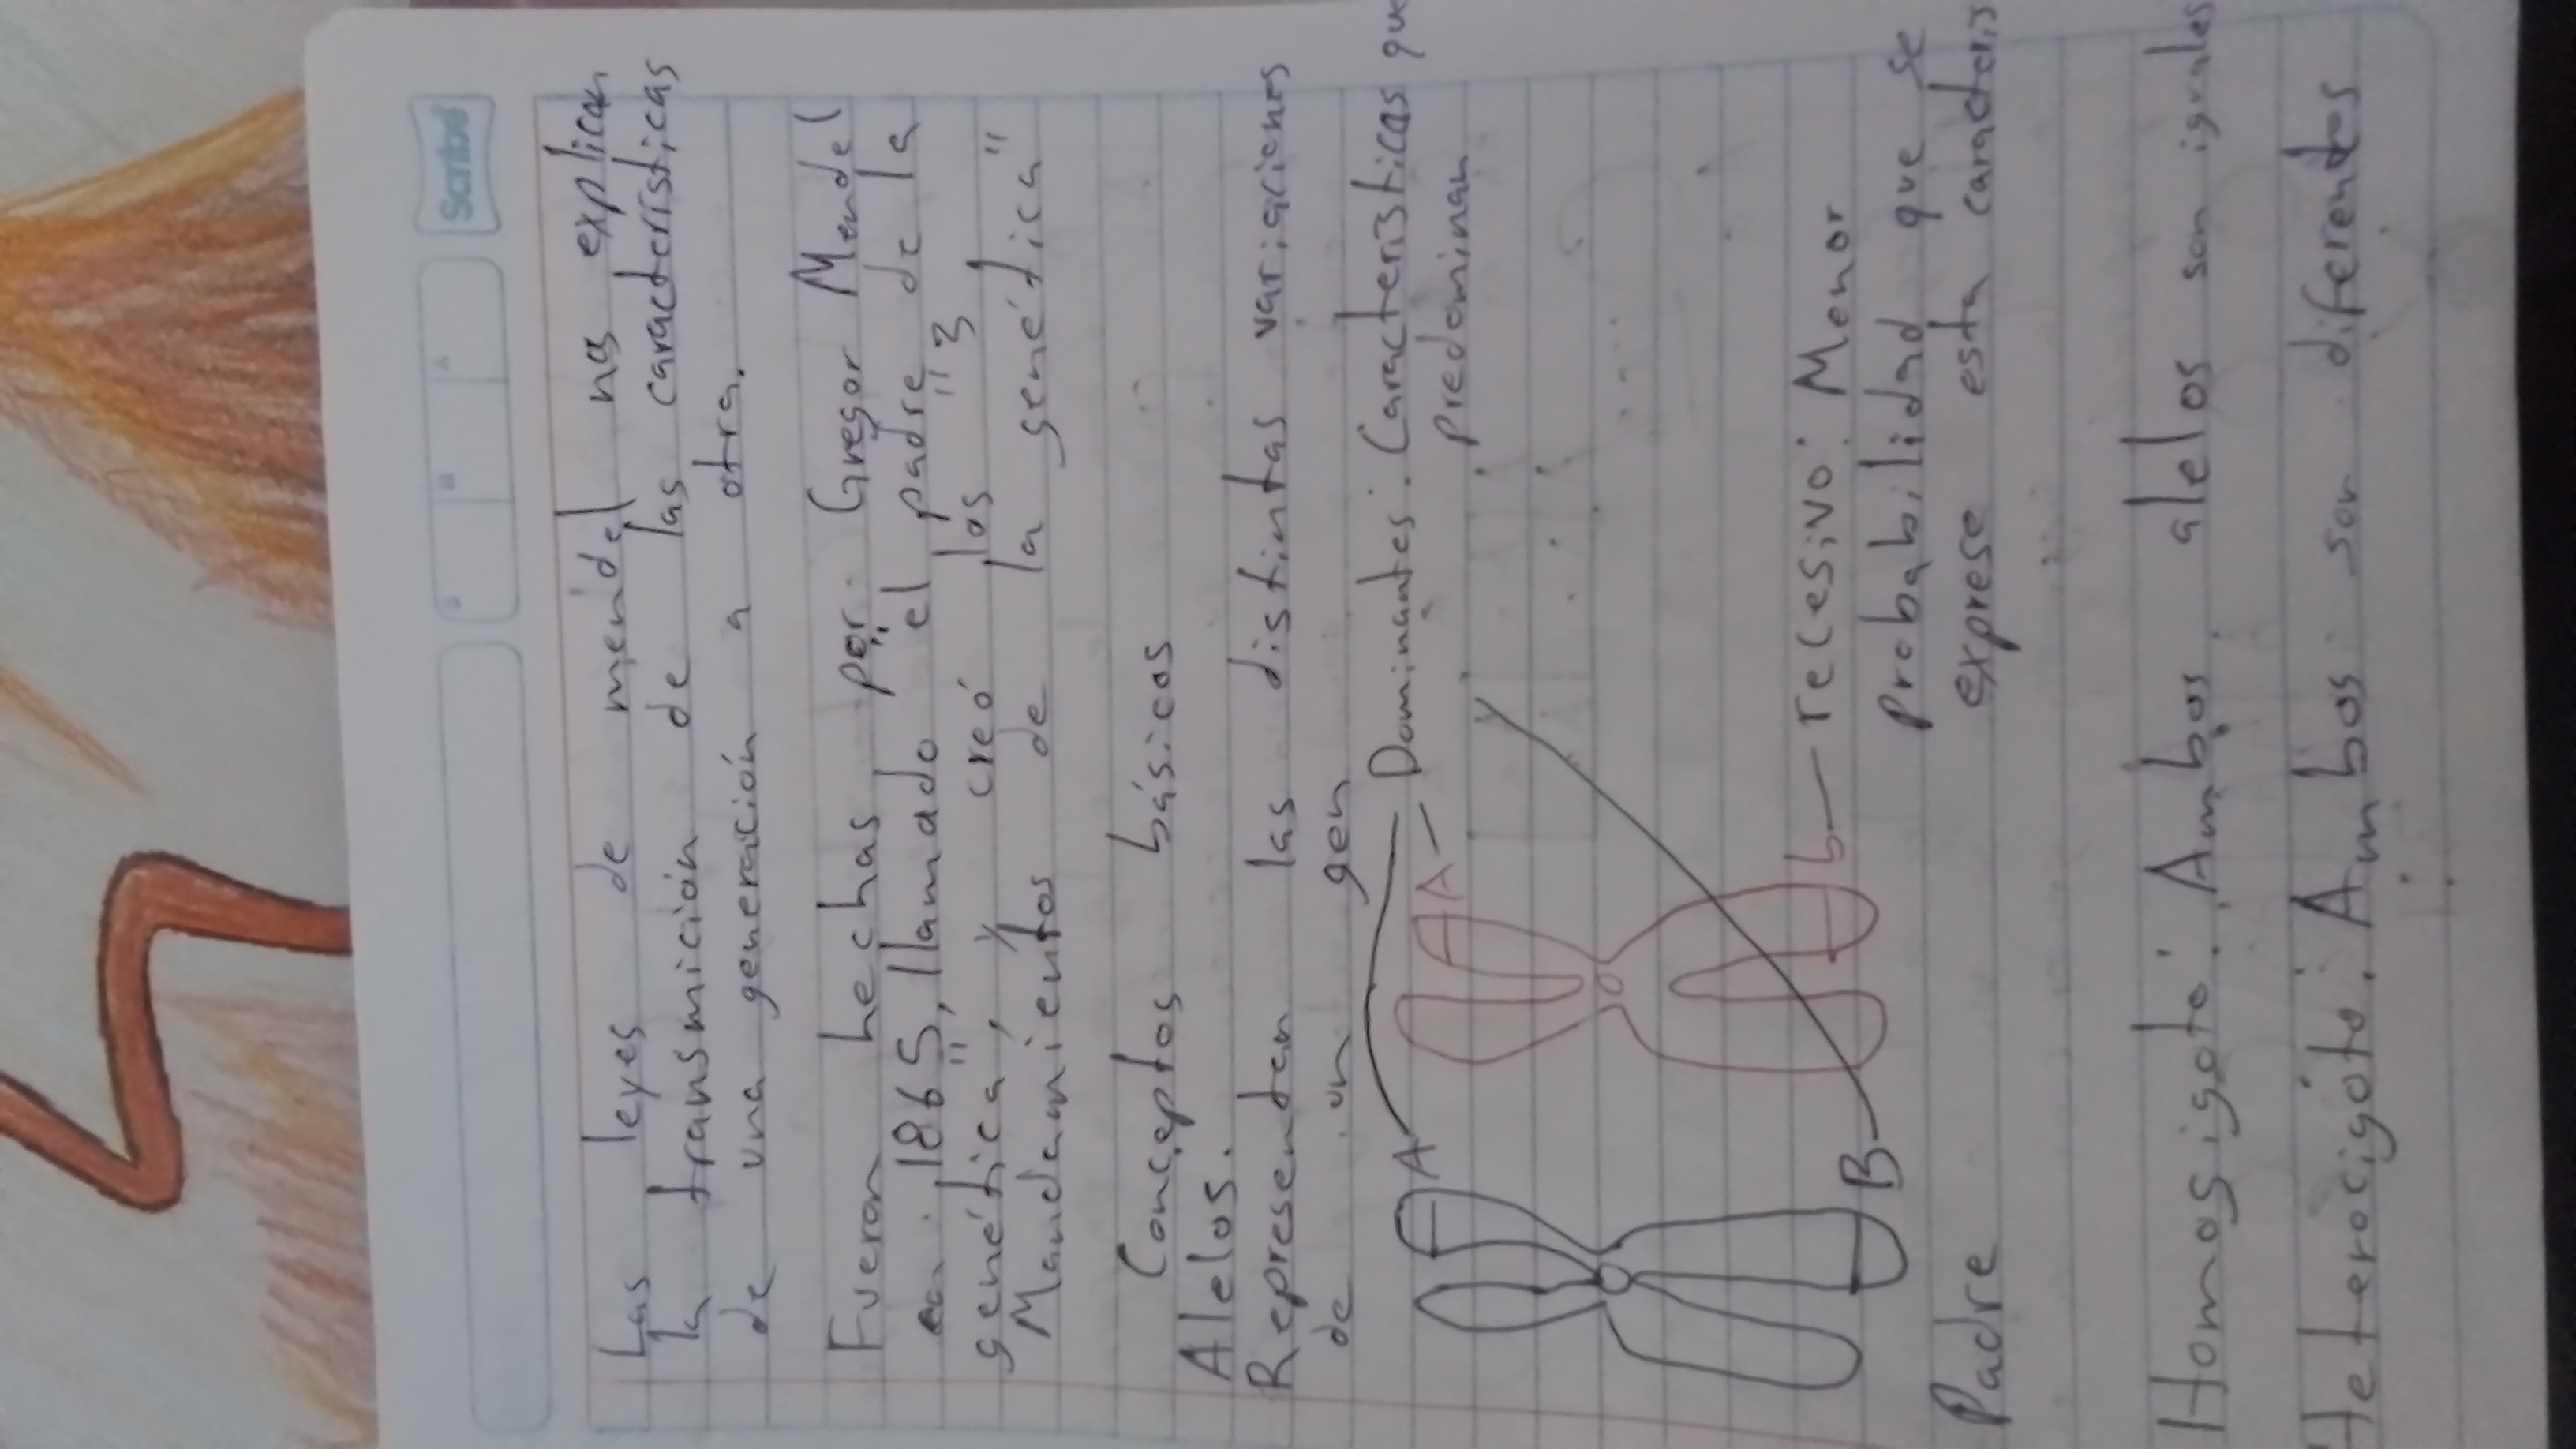 Scribe
D M A
Las leyes de mendel nos explican
la transmición de las características
de una generación a otra.
Fueron hechas por Gregor Mendel
en 1865, llamado el padre de la
genética, y creó los "3
Mandamientos de la genética"
Conceptos básicos
Alelos.
Representan las distintas variaciones
de un gen
A A - Dominantes: Características que
predominan
B b - recesivo: Menor
Probabilidad que se
exprese esta caracteris
Padre
Homosigoto: Ambos alelos son iguales
Heterocigoto: Ambos son diferentes